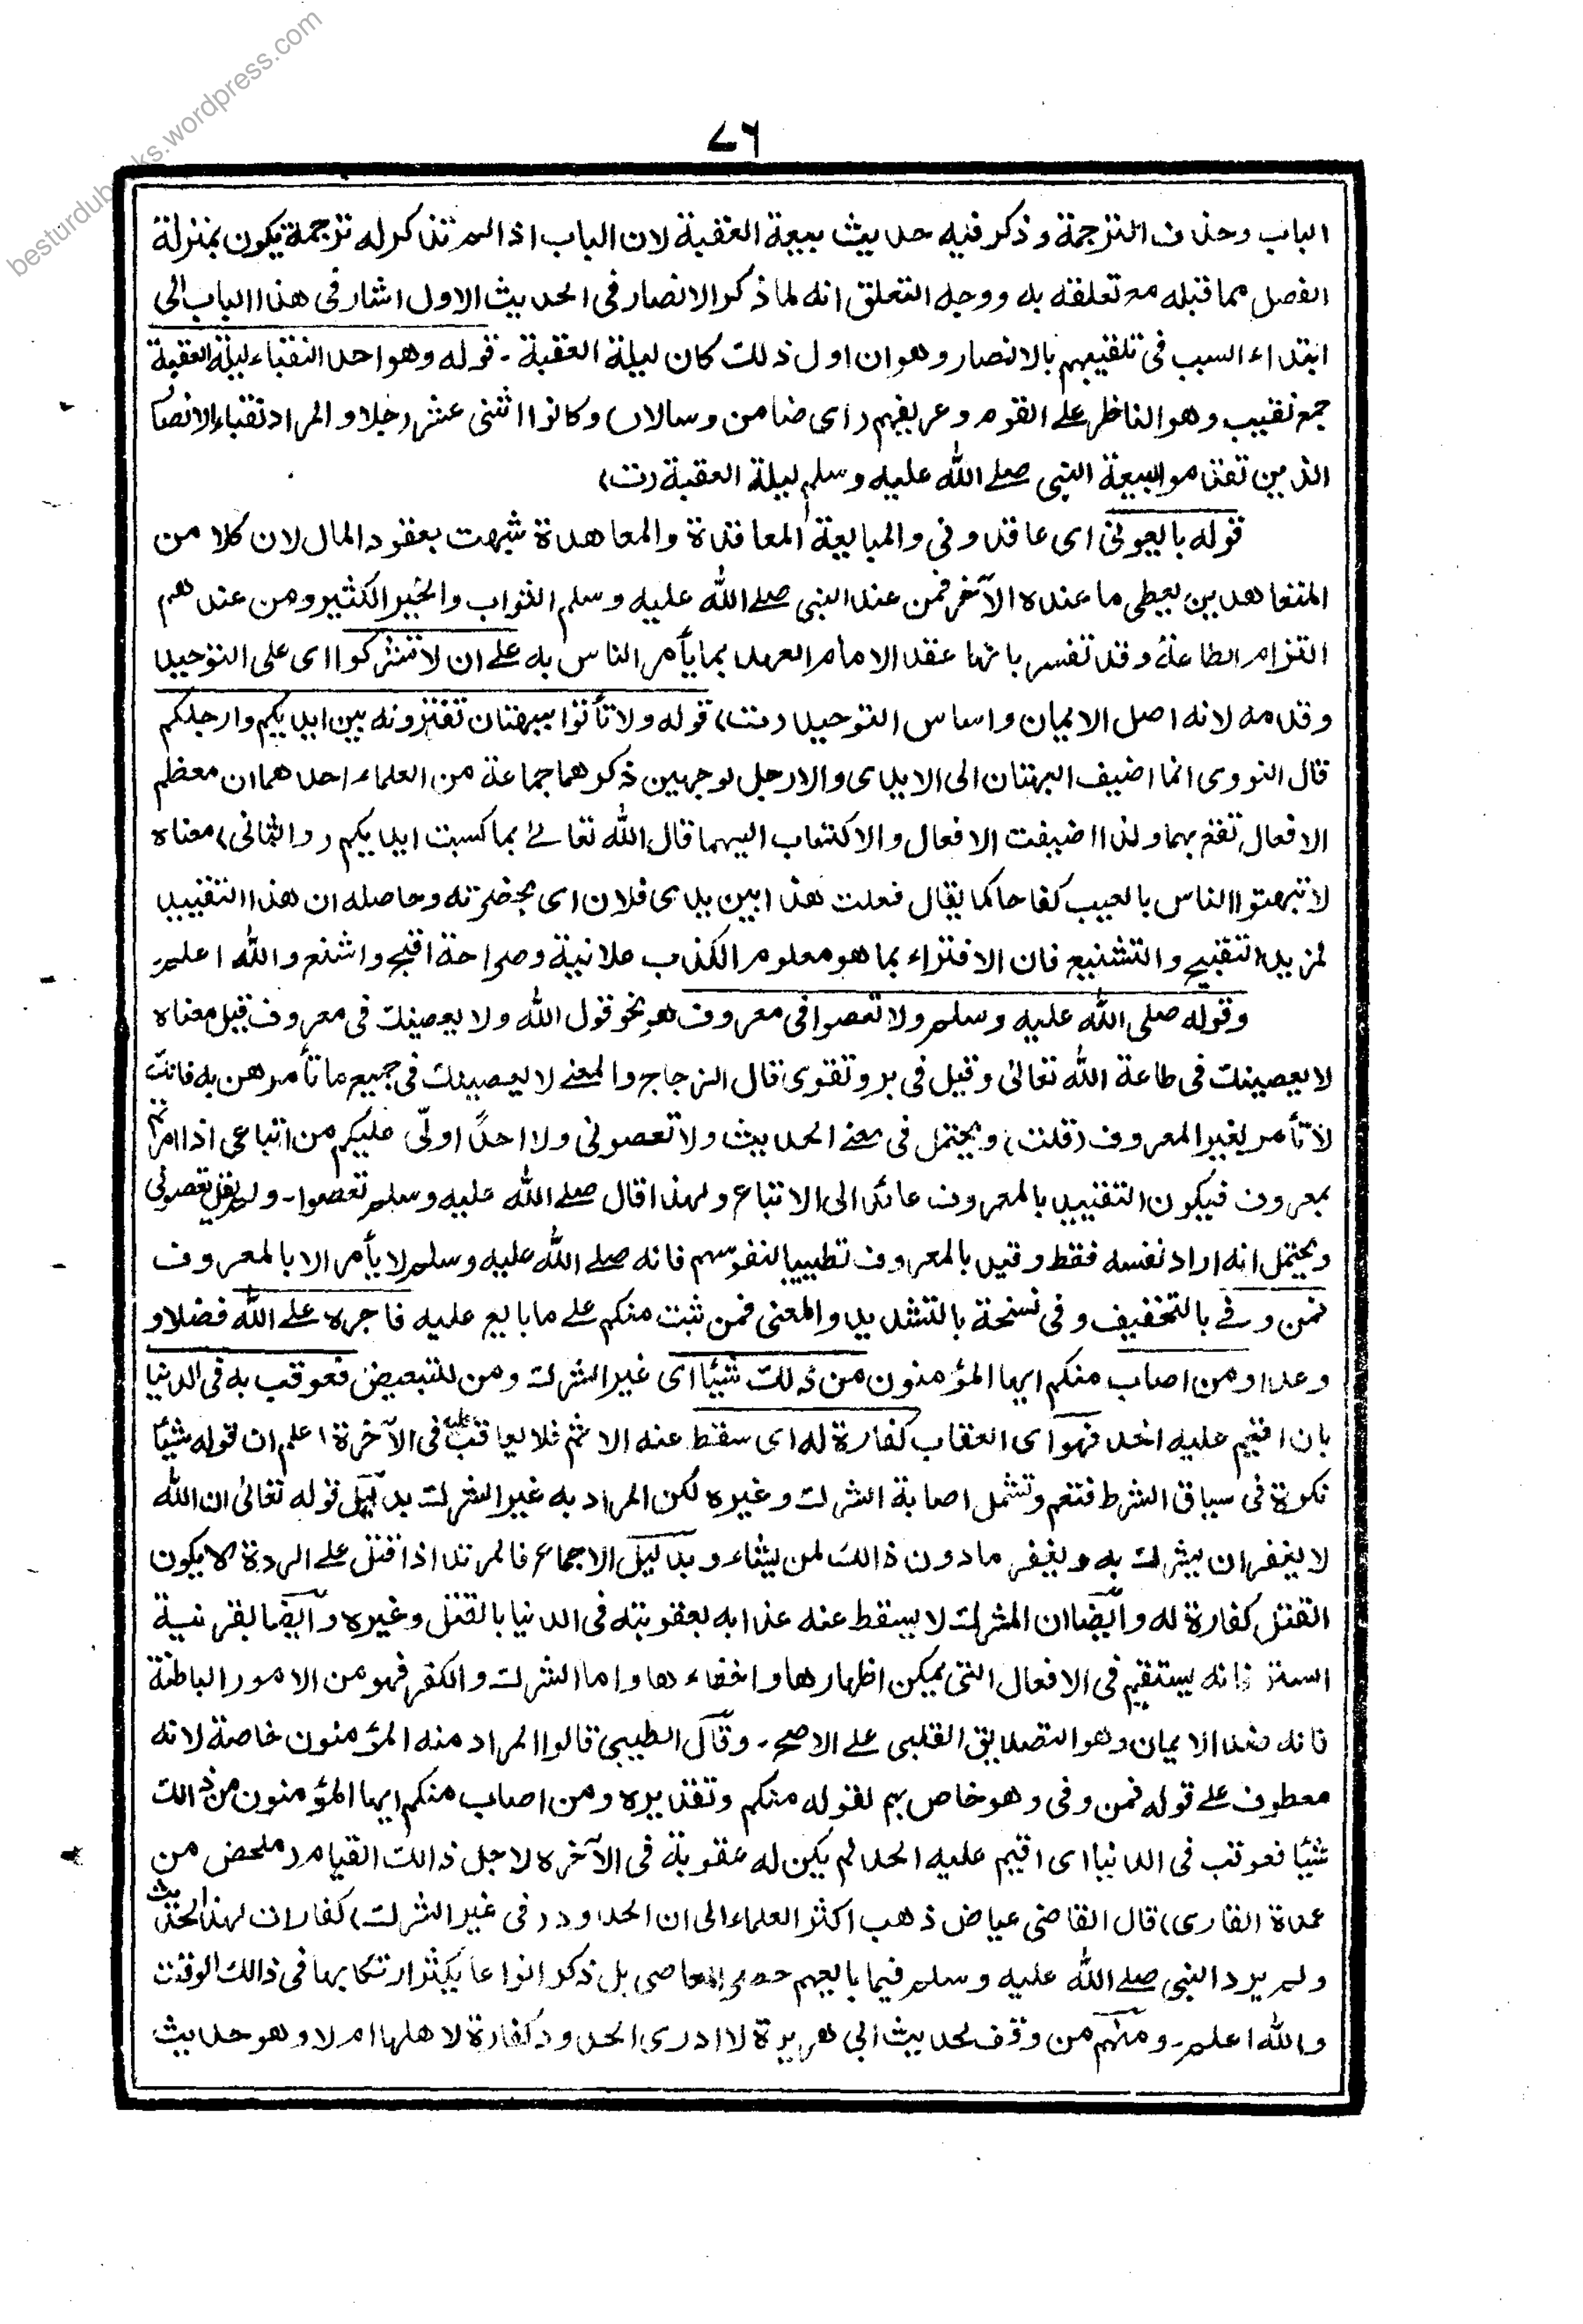 besturdubooks.wordpress.com
٧٦
الباب وحذف الترجمة وذكر فيه حديث بيعة العقبة لان الباب اذا لم تذكر له ترجمة يكون بمنزلة
الفصل مما قبله مع تعلقه به ووجه التعلق انه لما ذكر الانصار فى الحديث الاول اشار فى هذا الباب الى
ابتداء السبب فى تلقيبهم بالانصار وهو ان اول ذلك كان ليلة العقبة - قوله وهو احد النقباء ليلة العقبة
جمع نقيب وهو الناظر على القوم وعريفهم (اى ضامن وسالار) وكانوا اثنى عشر رجلا والمراد نقباء الانصا
الذين تقدموا لبيعة النبى صلے الله عليه وسلم ليلة العقبة (ت)
قوله بايعونى اى عاقدونى والمبايعة المعاقدة والمعاهدة شبهت بعقود المال لان كلا من
المتعاهدين يعطى ما عنده الآخر فمن عند النبى صلے الله عليه وسلم الثواب والخير الكثير ومن عندهم
التزام الطاعة وقد تفسر بانها عقد الامام العهد بما يأمر الناس به علے ان لا تشركوا اى على التوحيد
وقدمه لانه اصل الايمان واساس التوحيد (ت) قوله ولا تأتوا ببهتان تفترونه بين ايديكم وارجلكم
قال النووى انما اضيف البهتان الى الايدى والارجل لوجهين ذكرهما جماعة من العلماء احدهما ان معظم
الافعال تقع بهما ولذا اضيفت الافعال والاكتساب اليهما قال الله تعالےٰ بما كسبت ايديكم (والثانى) معناه
لا تبهتوا الناس بالعيب كفاحا كما يقال فعلت هذا بين يدى فلان اى بحضرته وحاصله ان هذا التقييد
لمزيد التقبيح والتشنيع فان الافتراء بما هو معلوم الكذب علانية وصراحة اقبح واشنع والله اعلم
وقوله صلى الله عليه وسلم ولا تعصوا فى معروف هو نحو قول الله ولا يعصينك فى معروف قيل معناه
لا يعصينك فى طاعة الله تعالىٰ وقيل فى بر وتقوى قال الزجاج والمعنے لا يعصينك فى جميع ما تأمرهن به فانك
لا تأمر بغير المعروف (قلت) ويحتمل فى معنے الحديث ولا تعصونى ولا احدًا اولّى عليكم من اتباعى اذا امرتم
بمعروف فيكون التقييد بالمعروف عائدا الى الاتباع ولهذا قال صلے الله عليه وسلم تعصوا - ولم يقل تعصونى
ويحتمل انه اراد نفسه فقط وقيد بالمعروف تطييبا لنفوسهم فانه صلے الله عليه وسلم لا يأمر الا بالمعروف
فمن وفے بالتخفيف وفى نسخة بالتشديد والمعنى فمن ثبت منكم علے ما بايع عليه فاجره علے الله فضلا و
وعدا ومن اصاب منكم ايها المؤمنون من ذلك شيئا اى غير الشرك ومن للتبعيض فعوقب به فى الدنيا
بان اقيم عليه الحد فهو اى العقاب كفارة له اى سقط عنه الاثم فلا يعاقب عليه فى الآخرة اعلم ان قوله شيئا
نكرة فى سياق الشرط فتعم وتشمل اصابة الشرك وغيره لكن المراد به غير الشرك بدليل قوله تعالىٰ ان الله
لا يغفر ان يشرك به ويغفر ما دون ذالك لمن يشاء وبدليل الاجماع فالمرتد اذا قتل علے الردة لا يكون
القتل كفارة له وايضا ان المشرك لا يسقط عنه عذابه بعقوبته فى الدنيا بالقتل وغيره وايضا بقرنية
الستر فانه يستقيم فى الافعال التى يمكن اظهارها واخفاءها واما الشرك والكفر فهو من الامور الباطنة
فانه ضد الايمان وهو التصديق القلبى علے الاصح - وقال الطيبى قالوا المراد منه المؤمنون خاصة لانه
معطوف علے قوله فمن وفى وهو خاص بهم لقوله منكم وتقديره ومن اصاب منكم ايها المؤمنون من ذالك
شيئا فعوقب فى الدنيا اى اقيم عليه الحد لم يكن له عقوبة فى الآخره لاجل ذالك القيام (ملخص من
عمدة القارى) قال القاضى عياض ذهب اكثر العلماء الى ان الحدود (فى غير الشرك) كفارات لهذا الحديث
ولم يرد النبى صلے الله عليه وسلم فيما بايعهم حصر المعاصى بل ذكر انواعا يكثر ارتكابها فى ذالك الوقت
والله اعلم - ومنهم من وقف لحديث ابى هريرة لا ادرى الحدود كفارة لاهلها ام لا وهو حديث